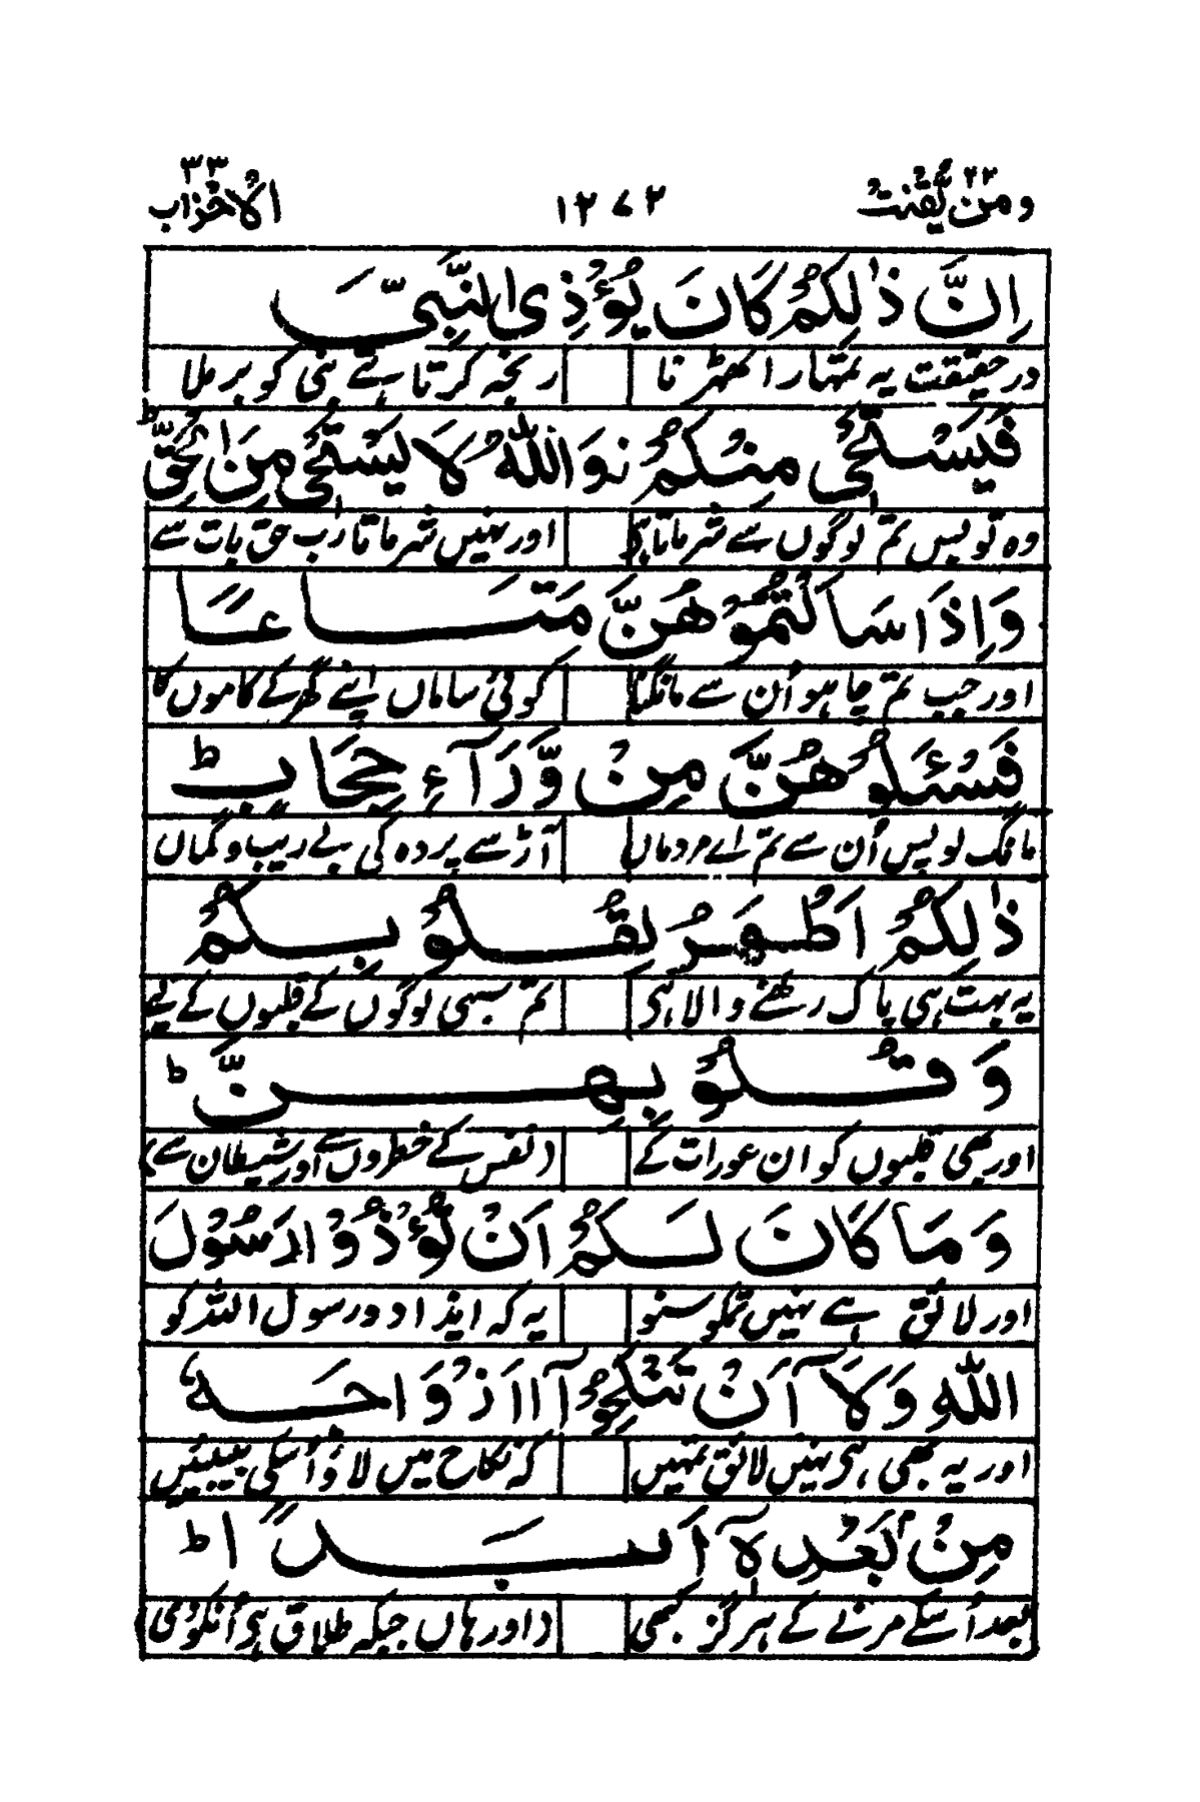 ومن یقنت ۲۲ ۱۲۷۲ الاحزاب ۳۳
اِنَّ ذٰلِكُمْ كَانَ يُؤْذِى النَّبِىَّ
در حقیقت یہ تمہارا ٹھہرنا رنجہ کرتا ہے نبی کو برملا
فَيَسْتَحْىٖ مِنْكُمْ ز وَاللّٰهُ لَا يَسْتَحْىٖ مِنَ الْحَقِّ ط
وہ تو پس تم لوگوں سے شرماتا ہی اور نہیں شرماتا رب حق بات سے
وَاِذَا سَاَلْتُمُوْهُنَّ مَتَاعًا
اور جب تم چاہو اُن سے مانگنا کوئی ساماں اپنے گھر کے کاموں کا
فَسْـَٔلُوْهُنَّ مِنْ وَّرَآءِ حِجَابٍ ط
مانگ لو پس اُن سے تم اے مردماں آڑ سے پردہ کی بے ریب و گماں
ذٰلِكُمْ اَطْهَرُ لِقُلُوْبِكُمْ
یہ بہت ہی پاک رکھنے والا ہی تم سبھی لوگوں کے قلبوں کے لیے
وَقُلُوْبِهِنَّ ط
اور بھی قلبوں کو ان عورات کے (نفس کے خطروں سے اور شیطان سے)
وَمَا كَانَ لَكُمْ اَنْ تُؤْذُوْا رَسُوْلَ
اور لائق ہے نہیں تمکو سنو یہ کہ ایذا دو رسول اللہ کو
اللّٰهِ وَلَآ اَنْ تَنْكِحُوْآ اَزْوَاجَهٗ
اور یہ بھی ہی نہیں لائق تمہیں کہ نکاح میں لاؤ اُسکی بیبئیں
مِنْۢ بَعْدِهٖٓ اَبَدًا ط
بعد اُسکے مرنے کے ہرگز کبھی (اور ہاں جبکہ طلاق ہو اُنکو دی)